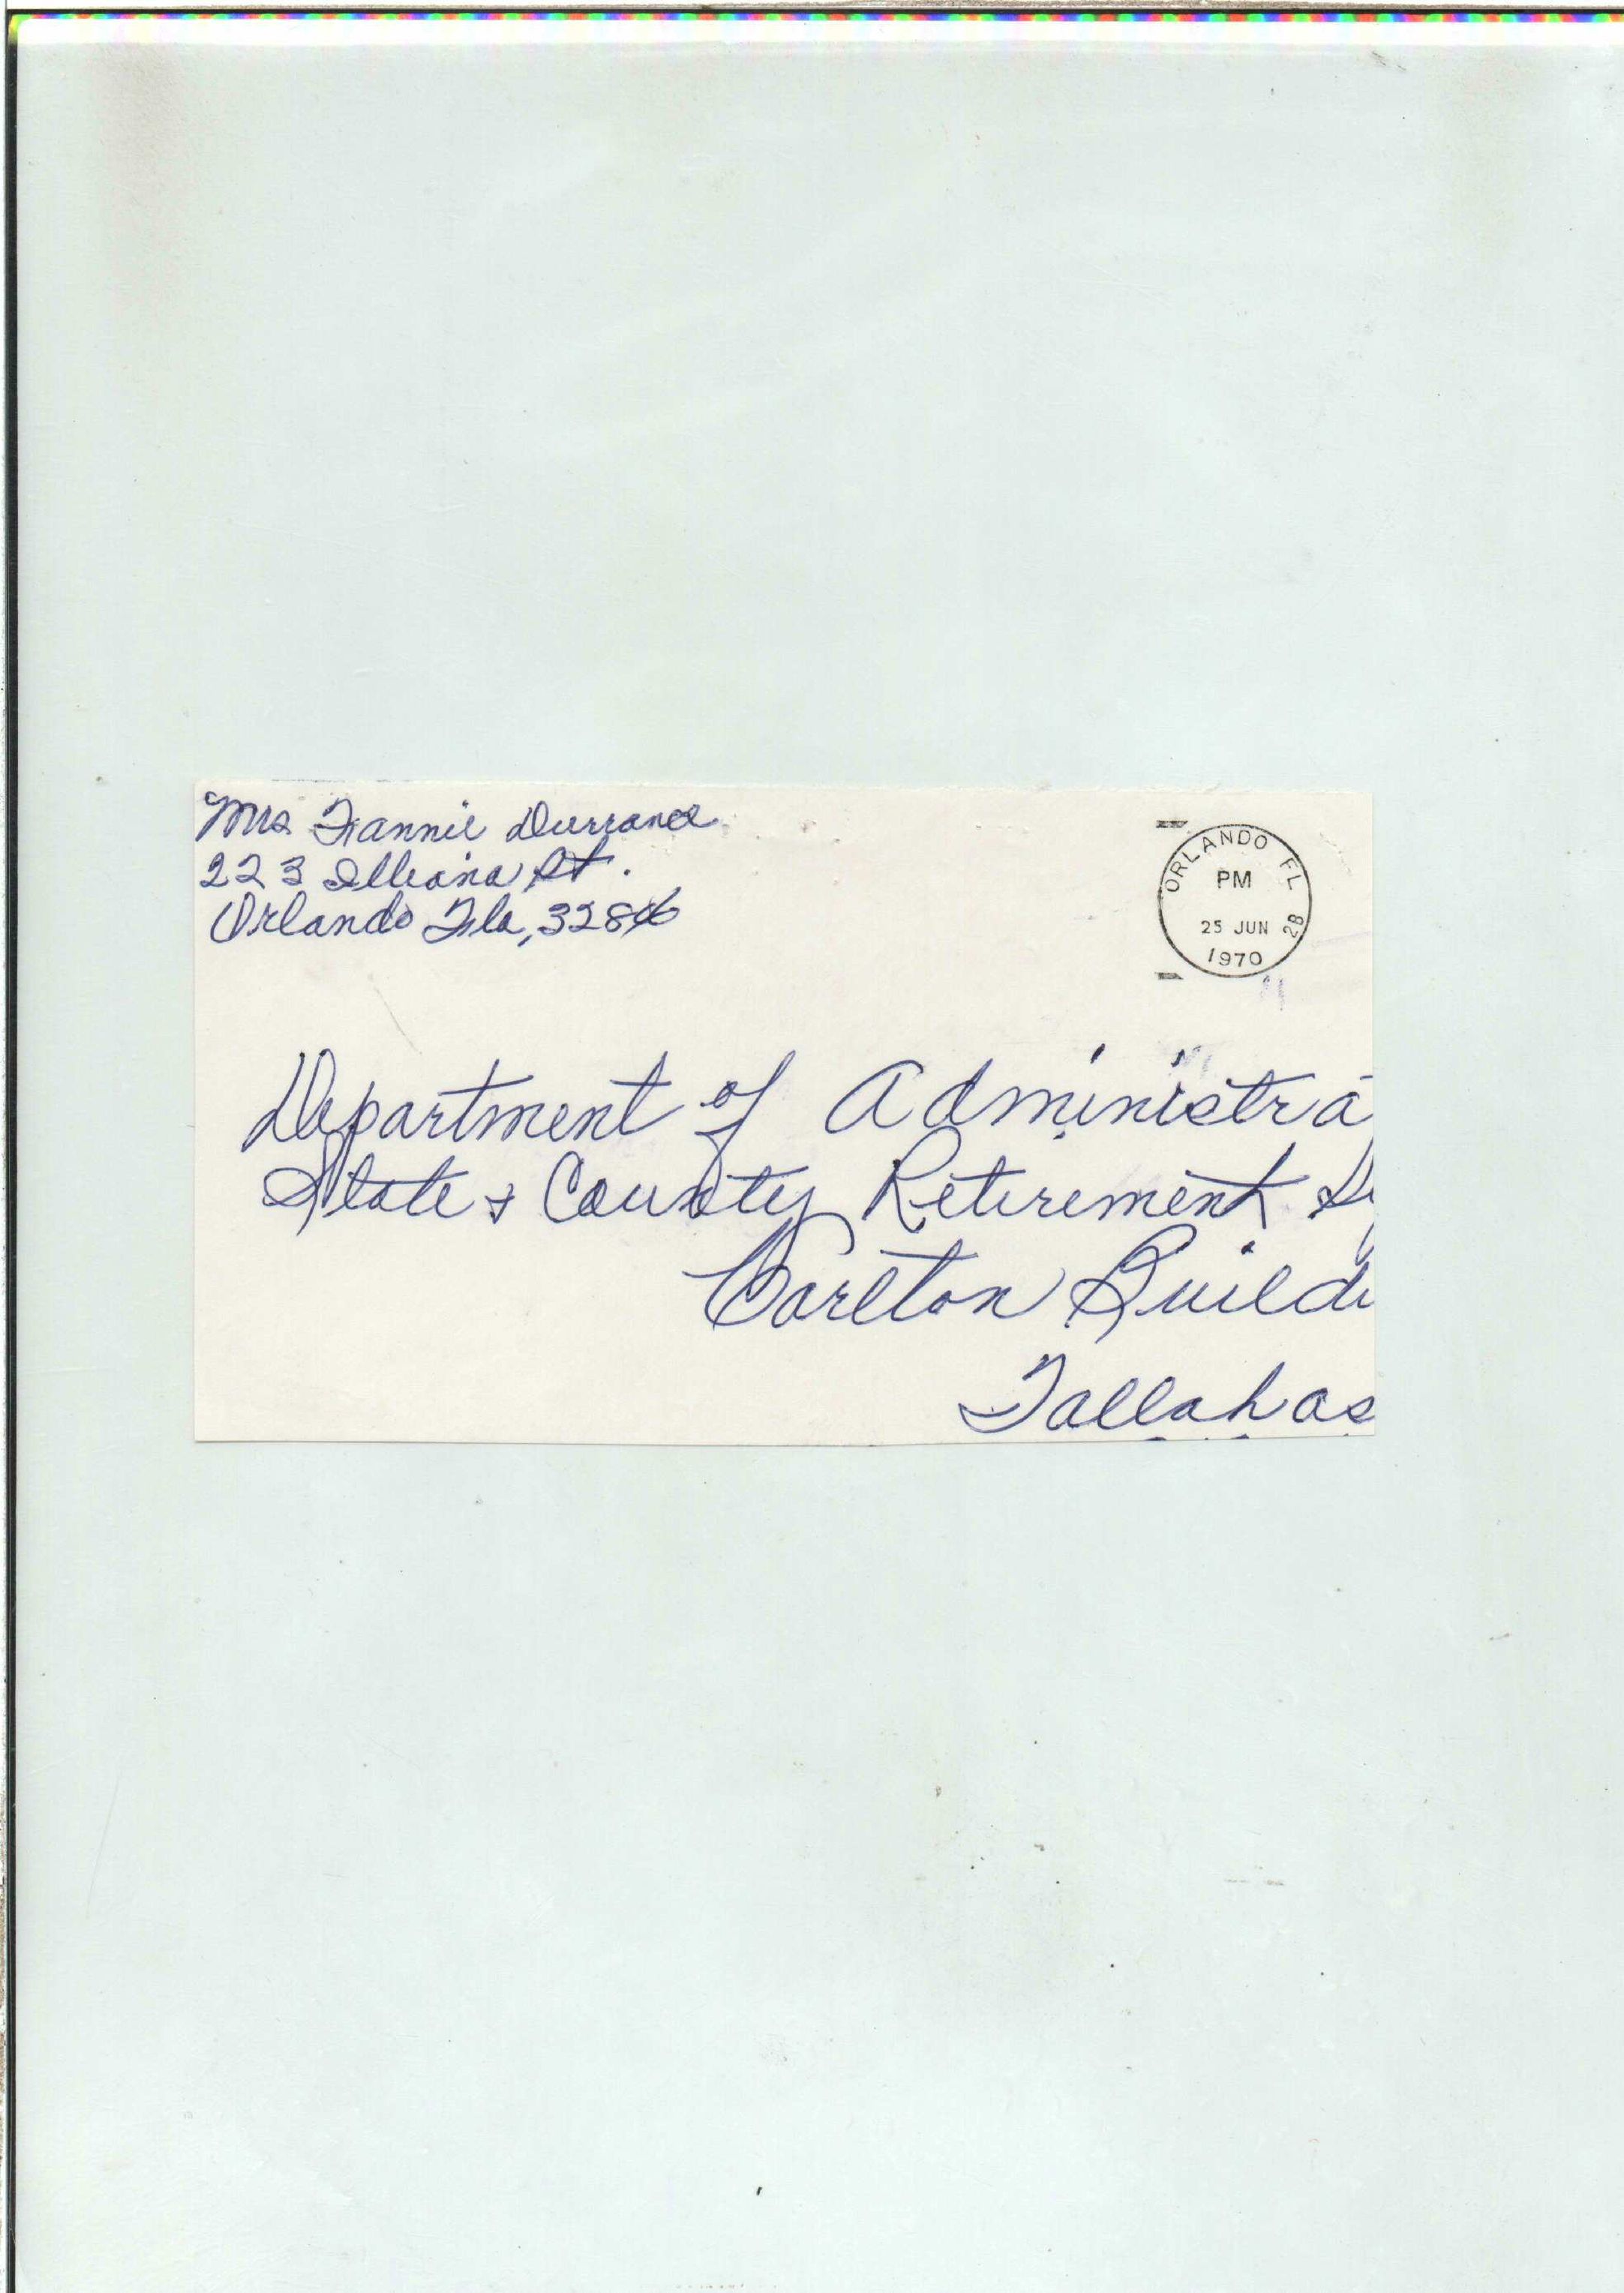 Mrs Fannie Durrance
223 Illiana St.
Orlando Fla, 32806
ORLANDO FL
PM
25 JUN
2B
1970
Department of Administra
State & County Retirement Sy
Carlton Buildi
Tallahas